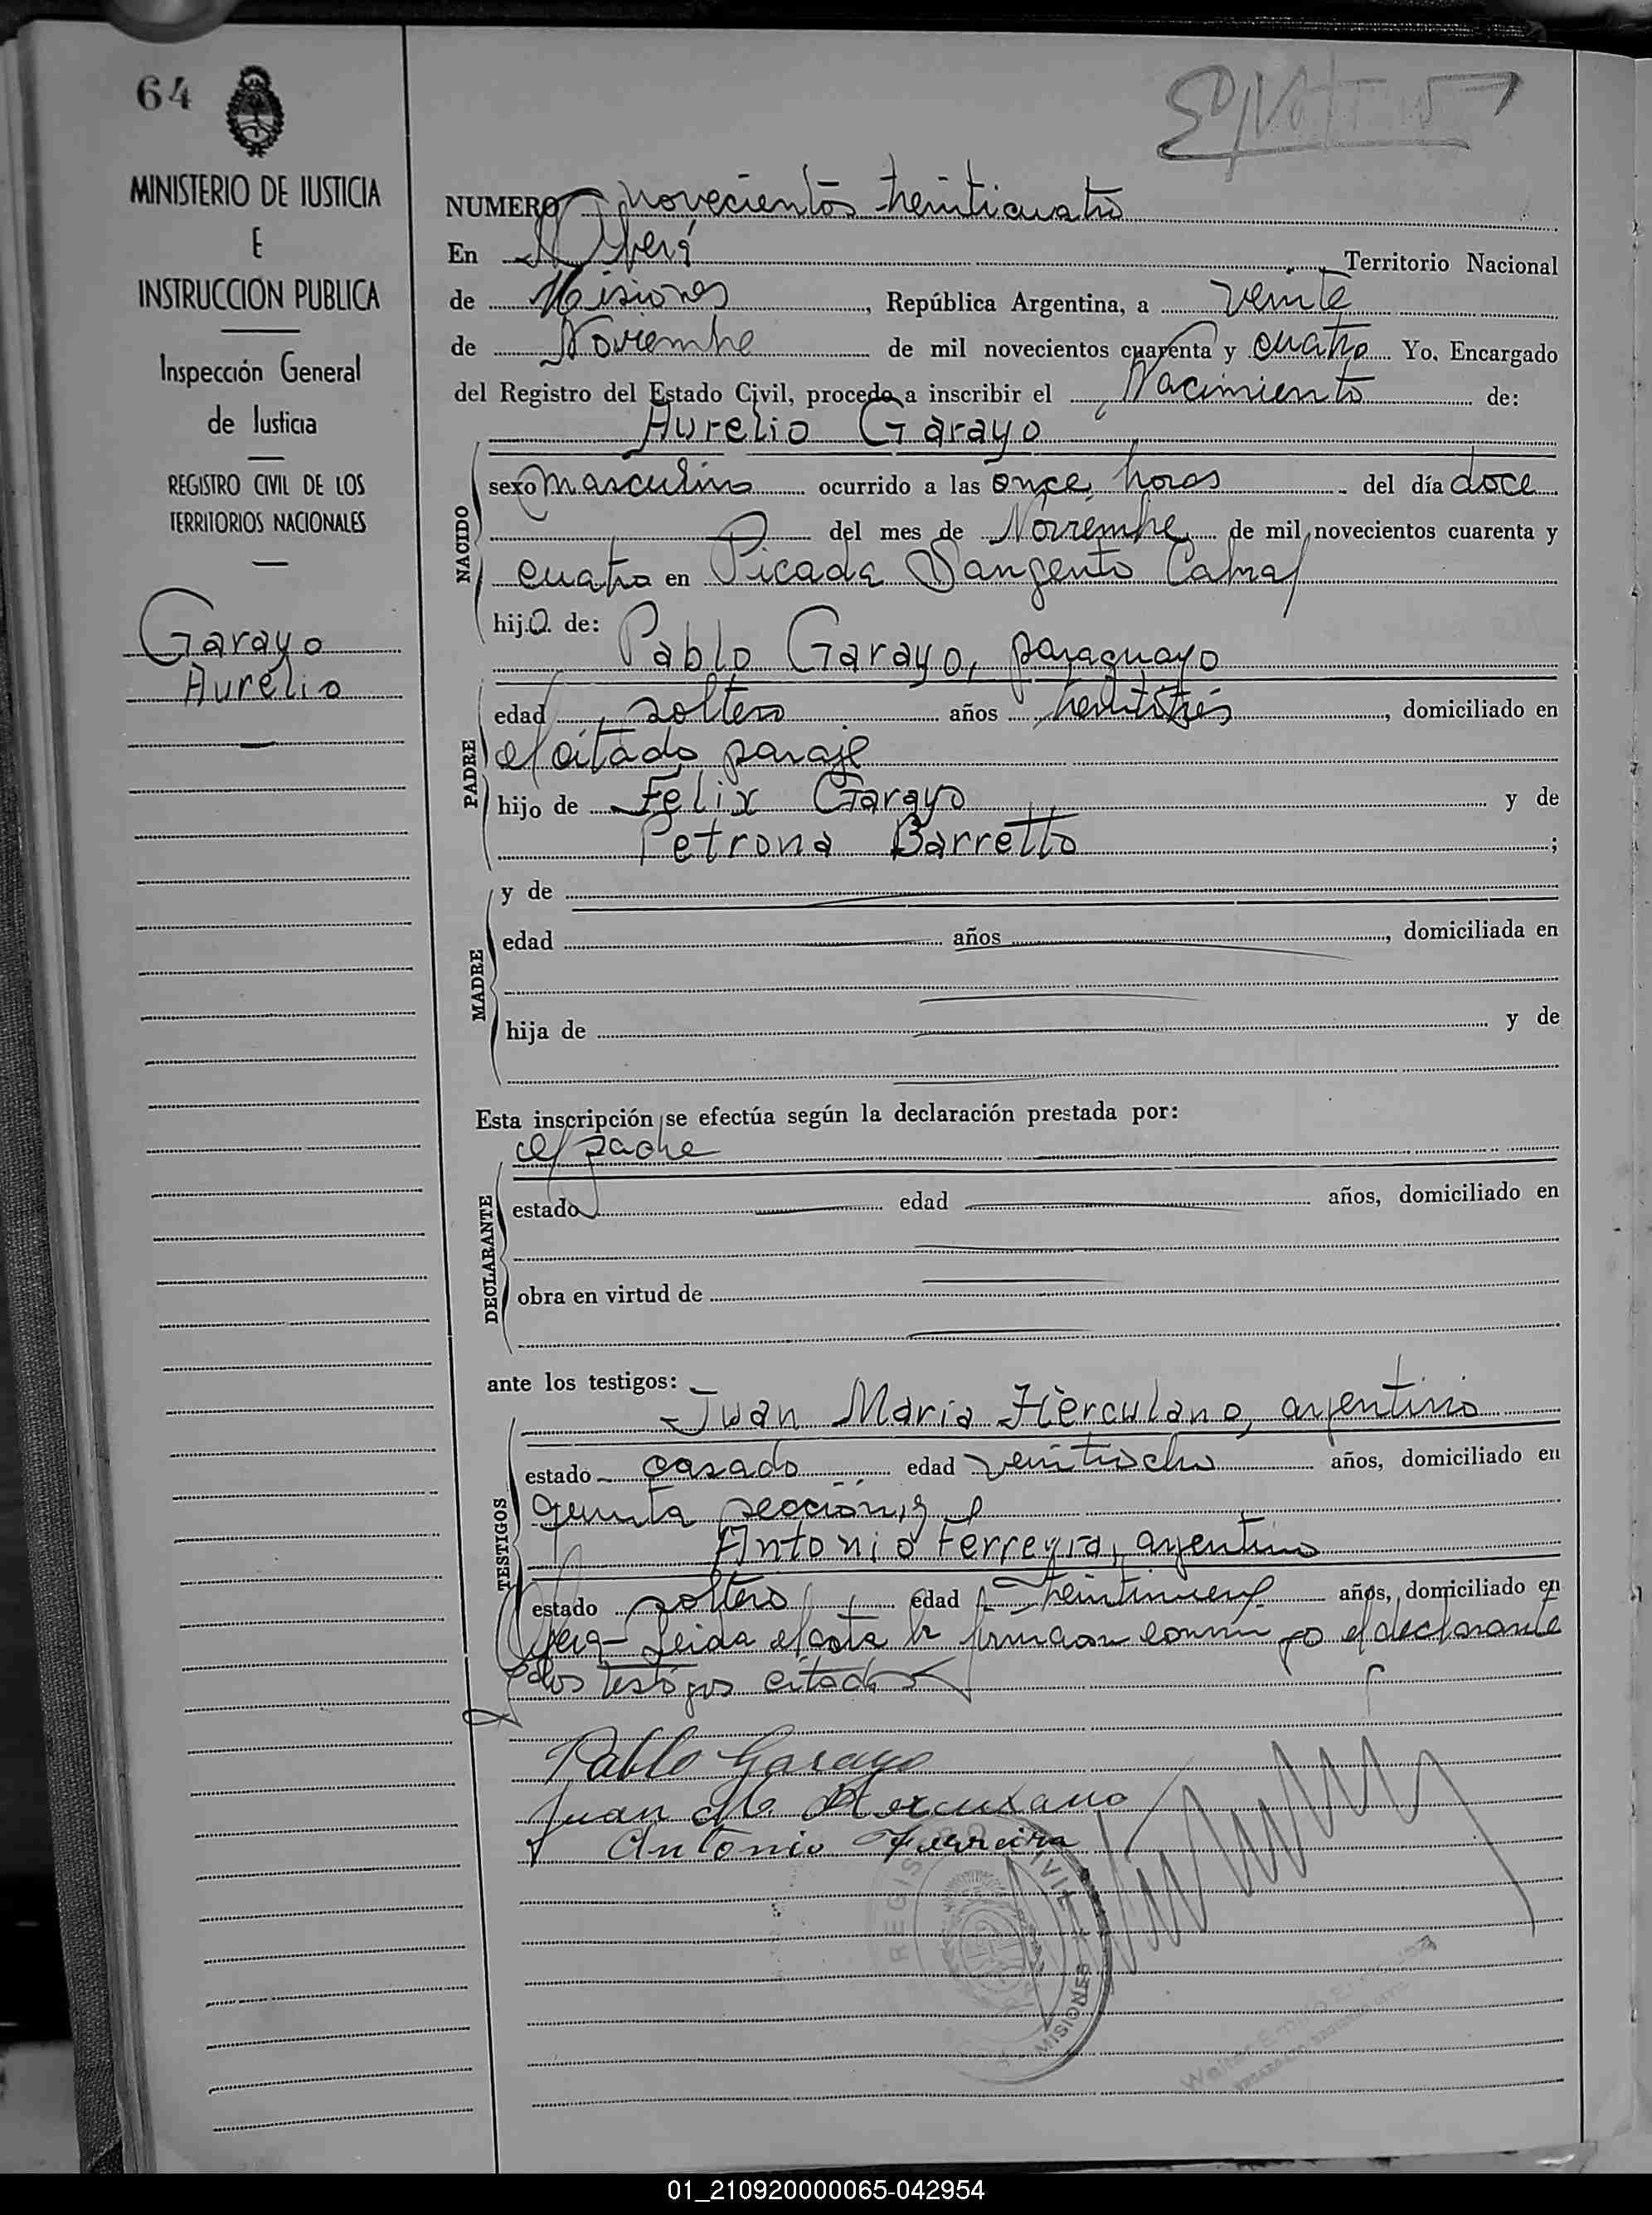 64
MINISTERIO DE JUSTICIA
E
INSTRUCCION PUBLICA
Inspección General
de Justicia
REGISTRO CIVIL DE LOS
TERRITORIOS NACIONALES
Garayo
Aurelio
NUMERO novecientos treinticuatro
En Oberá Territorio Nacional
de Misiones, República Argentina, a veinte
de Noviembre de mil novecientos cuarenta y cuatro Yo, Encargado
del Registro del Estado Civil, procedo a inscribir el Nacimiento de:
Aurelio Garayo
NACIDO
sexo masculino ocurrido a las once horas del día doce
del mes de Noviembre de mil novecientos cuarenta y
cuatro en Picada Sargento Cabral
hijo de:
Pablo Garayo, paraguayo
PADRE
edad soltero años treintitrés, domiciliado en
el citado paraje
hijo de Felix Garayo y de
Petrona Barretto;
MADRE
y de
edad años, domiciliada en
hija de y de
Esta inscripción se efectúa según la declaración prestada por:
el padre
DECLARANTE
estado edad años, domiciliado en
obra en virtud de
ante los testigos:
Juan Maria Herculano, argentino
TESTIGOS
estado casado edad veintiocho años, domiciliado en
quinta sección y
Antonio Ferreyra, argentino
estado soltero edad treintinueve años, domiciliado en
Oberá - Leida el acta la firmaron conmigo el declarante
y los testigos citados
Pablo Garayo
Juan Ma Herculano
Antonio Ferreira
REGISTRO CIVIL
MISIONES
Walter
01_210920000065-042954